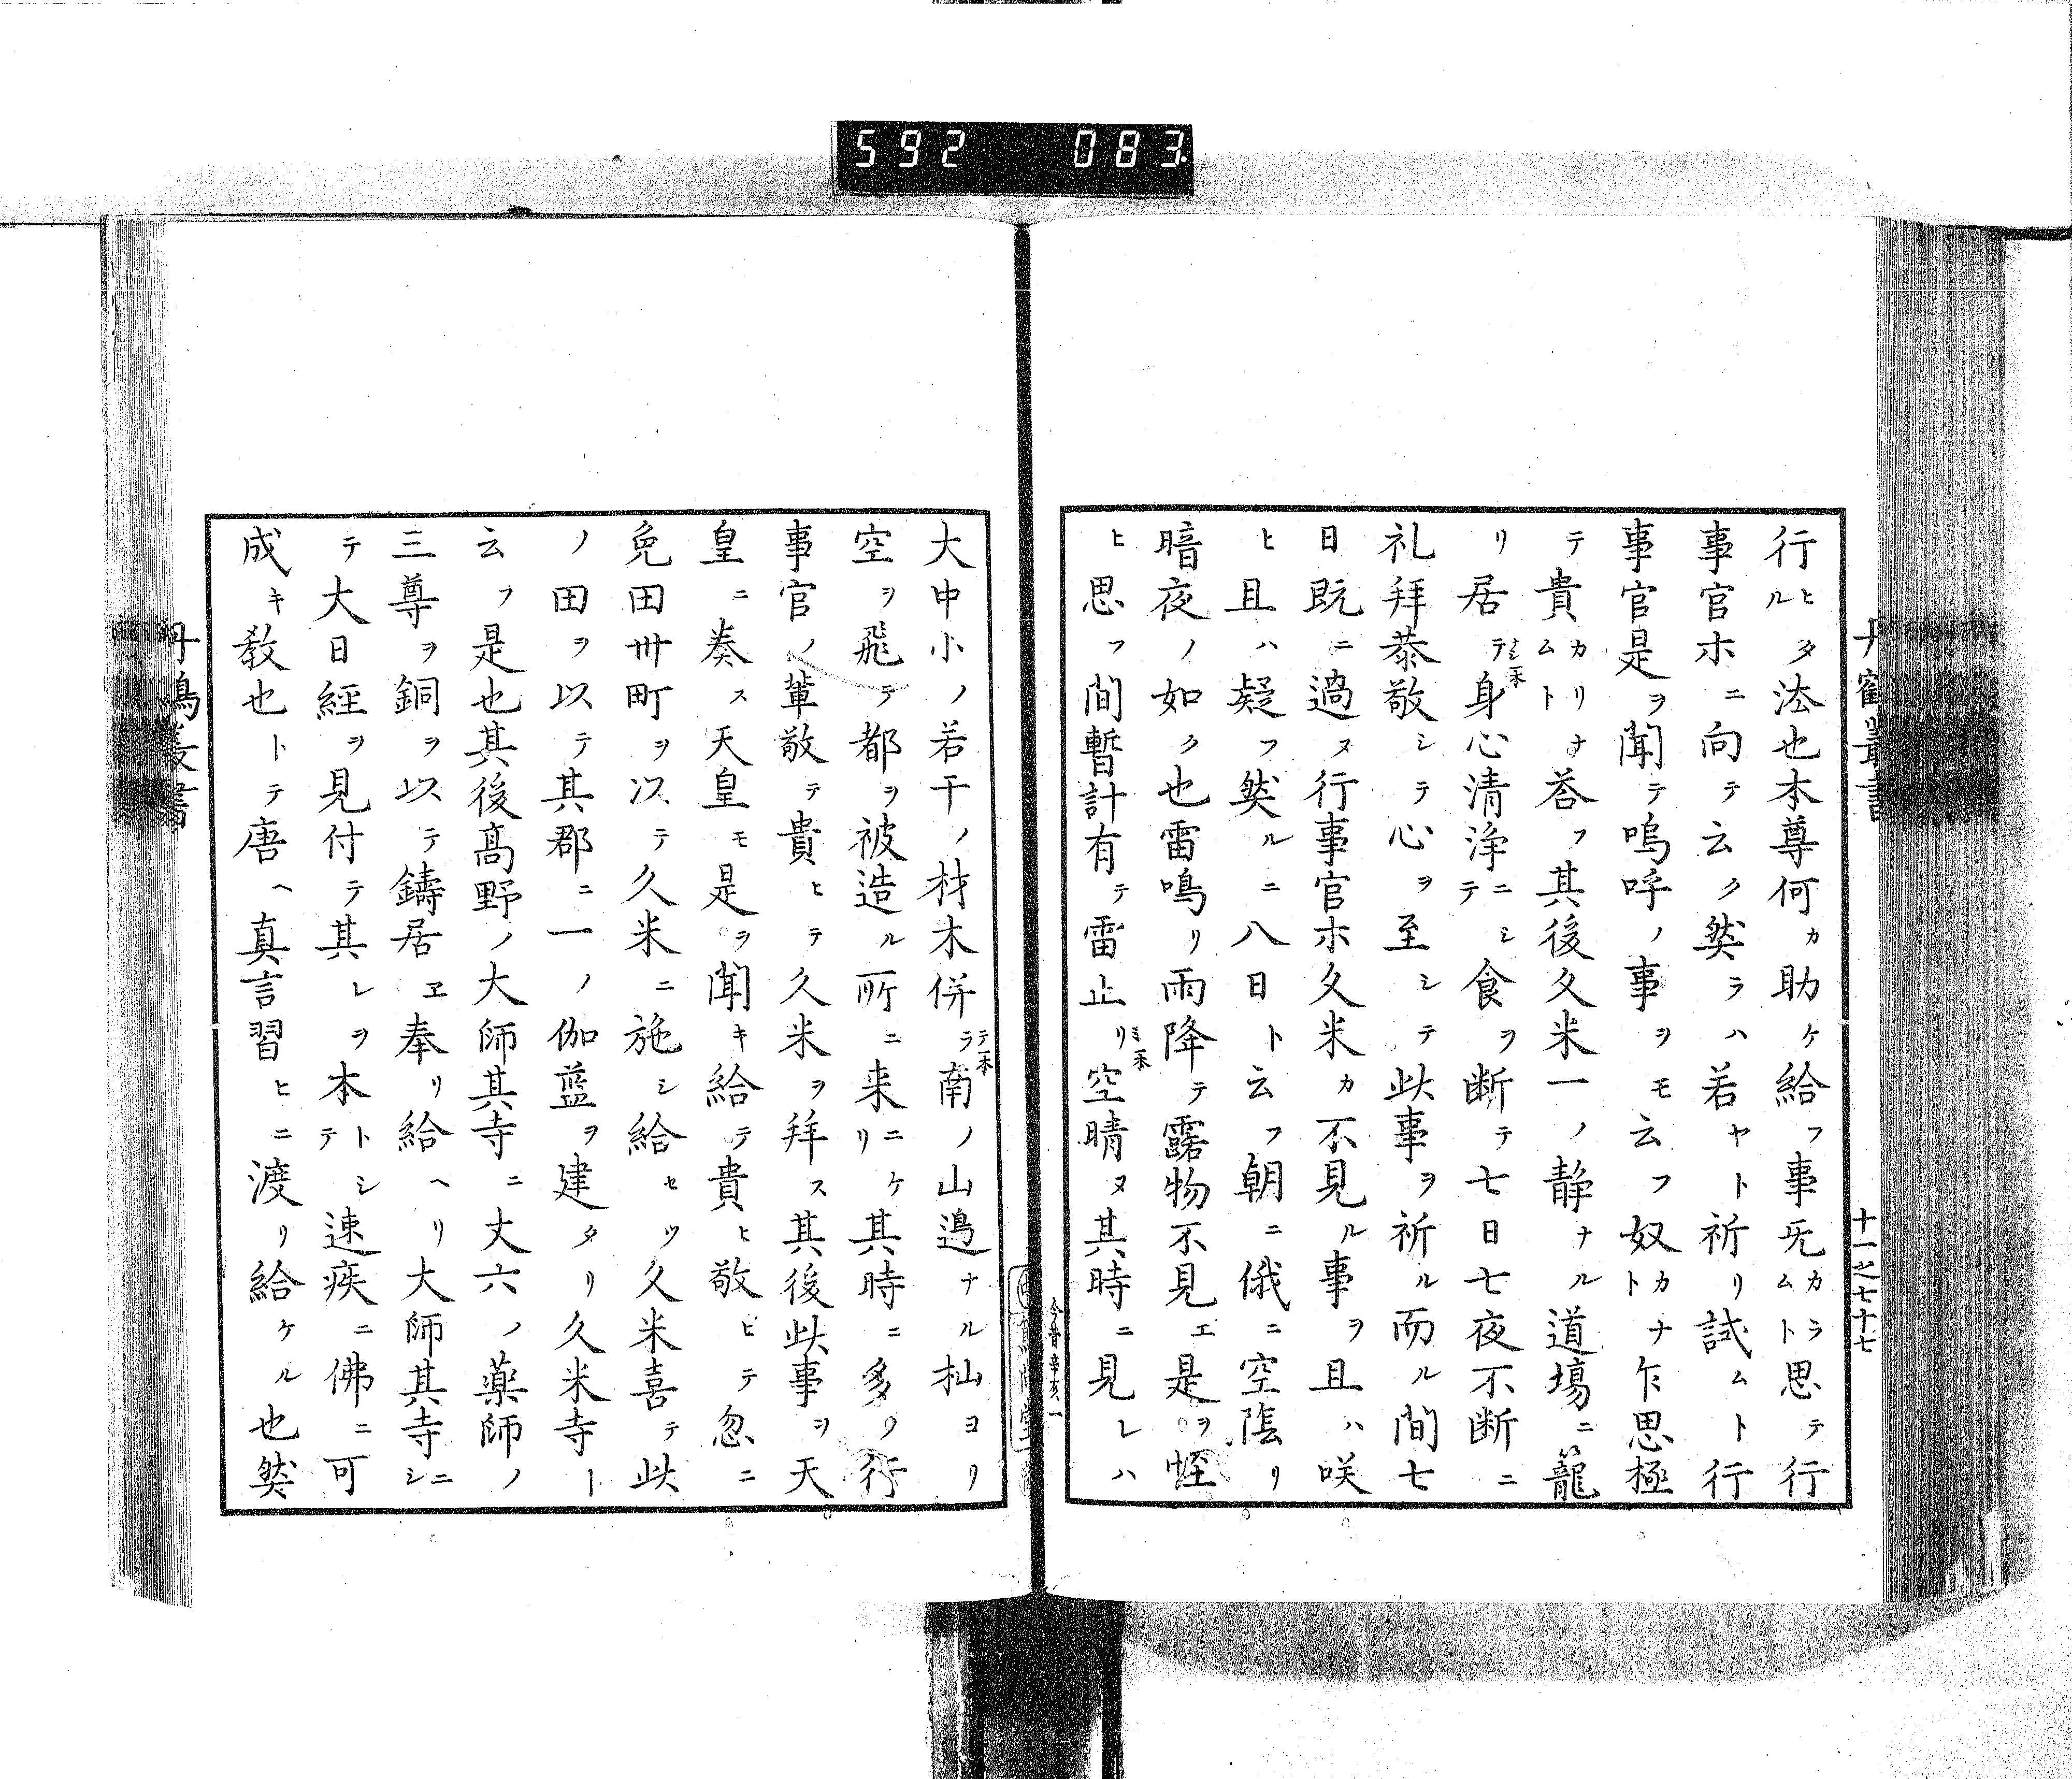 592 083
丹鶴叢書
十一之七十七
行ルヒタ法也本尊何カ助ケ給フ事旡カラムト思テ行
事官ホニ向テ云ク然ラハ若ヤト祈リ試ムト行
事官是ヲ聞テ嗚呼ノ事ヲモ云フ奴カナト乍思極
テ貴カリナムト荅フ其後久米一ノ静ナル道塲ニ籠
リ居テ身心清浄ニシテ食ヲ断テ七日七夜不断ニ
礼拜恭敬シテ心ヲ至シテ此事ヲ祈ル而ル間七
日既ニ過ヌ行事官ホ久米カ不見ル事ヲ且ハ咲
ヒ且ハ疑フ然ルニ八日ト云フ朝ニ俄ニ空陰リ
暗夜ノ如ク也雷鳴リ雨降テ露物不見エ是ヲ恠
ヒ思フ間暫計有テ雷止リ空晴ヌ其時ニ見レハ
今昔 辛亥一
大中小ノ若干ノ材木併ラ南ノ山邉ナル杣ヨリ
空ヲ飛テ都ヲ被造ル所ニ来ニケリ其時ニ多ク行
事官ノ輩敬テ貴ヒテ久米ヲ拜ス其後此事ヲ天
皇ニ奏ス天皇モ是ヲ聞キ給テ貴ヒ敬ビテ忽ニ
免田卅町ヲ以テ久米ニ施シ給セツ久米喜テ此
ノ田ヲ以テ其郡ニ一ノ伽藍ヲ建タリ久米寺ト
云フ是也其後髙野ノ大師其寺ニ丈六ノ薬師ノ
三尊ヲ銅ヲ以テ鑄居ヱ奉リ給ヘリ大師其寺ニシ
テ大日經ヲ見付テ其レヲ本トシテ速疾ニ佛ニ可
成キ教也トテ唐ヘ真言習ヒニ渡リ給ケル也然
丹鶴叢書